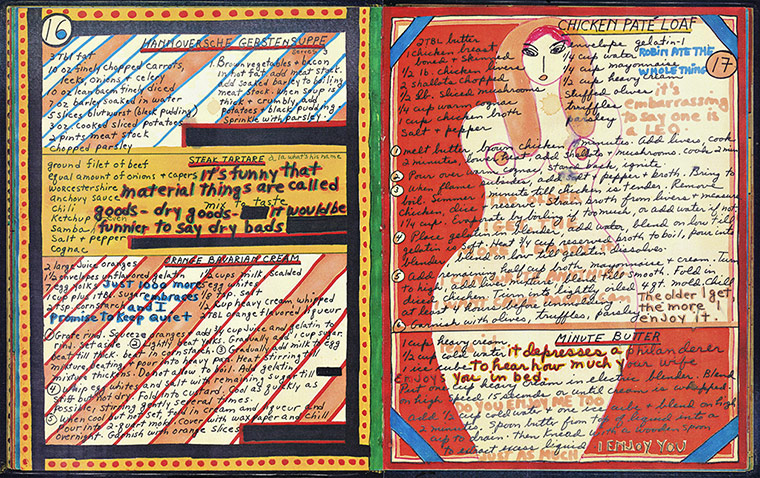 16
HANNOVERSCHE GERSTENSUPPE
Serves 3
3 TBL fat
10 oz finely chopped carrots,
leeks, onions + celery
7 oz lean bacon finely diced
7 oz barley soaked in water
5 slices blutwurst (black pudding)
3 oz cooked sliced potatoes
2 pints meat stock
Chopped parsley
1. Brown vegetables + bacon
in hot fat. add meat stock.
add soaked barley to boiling
meat stock. when soup is
thick + crumbly, add
potatoes + black pudding.
Sprinkle with parsley.
STEAK TARTARE à la what's his name
ground filet of beef
equal amount of onions + capers
Worcestershire
anchovy sauce
Chili
Ketchup
Sambal
Salt + pepper
Cognac
mix to taste
it's funny that
material things are called
goods - dry goods -
it would be
funnier to say dry bads
ORANGE BAVARIAN CREAM
2 large juice oranges
1 1/2 envelopes unflavored gelatin
7 egg yolks
1 cup plus 1 TBL sugar
2 tsp cornstarch
1 1/2 cups milk, scalded
5 egg whites
1/8 tsp. salt
1/2 cup heavy cream whipped
2 TBL orange flavored liqueur
Just 1000 more
embraces
and I
promise to keep quiet
① Grate rind. Squeeze oranges, add 3/4 cup juice and gelatin to
rind. Set aside. ② Lightly beat yolks. Gradually add 1 cup sugar.
beat till thick. beat in cornstarch. ③ Gradually add milk to egg
mixture, beating. Pour into heavy pan. Heat, stirring till
mixture thickens. Do not allow to boil. Add gelatin
④ beat egg whites and salt with remaining sugar till
stiff but not dry. Fold into custard. Cool as quickly as
possible, stirring gently several times.
⑤ when cool, but not set, fold in cream and liqueur and
Pour into 2-quart mold. Cover with wax paper and Chill
overnight. Garnish with orange slices
17
CHICKEN PATE LOAF
2 TBL butter
1 chicken breast
boned + skinned
1/2 lb. chicken livers
2 shallots chopped
1/2 lb. sliced mushrooms
1/4 cup warm cognac
1 cup chicken broth
Salt + pepper
envelope gelatin - 1
1/4 cup water
1/4 cup mayonnaise
cup heavy
Stuffed olives
truffles
parsley
ROBIN ATE THE
WHOLE THING
it's
embarrassing
to say one is
a LEO
① melt butter, brown chicken minutes. Add livers, cook
2 minutes, add shallots + mushrooms. cook 2 min
② Pour over warm cognac, stand back, ignite.
③ When flame subsides, add salt + pepper + broth. Bring to
boil. Simmer minute till chicken is tender. Remove
chicken, dice. Strain broth from livers + measure
1 1/4 cup. concentrate by boiling if too mesh, or add water if not.
④ Place gelatin in blender. Add water, blend on low till
gelatin is soft. Heat 3/4 cup reserved broth to boil, pour into
blender, blend on low till gelatin dissolves.
⑤ Add remaining half cup broth, mayonnaise + cream. Turn
to high, add liver mixture, blend till smooth. Fold in
diced chicken. Pour into lightly oiled 4 qt. mold. Chill
at least 4 hours
⑥ Garnish with olives, truffles, parsley
The older I get,
the more I
enjoy it.
MINUTE BUTTER
1 cup heavy cream
1/2 cup cold water
1 ice cube
it depresses a philanderer
to hear how much your wife
ENJOYS you in bed.
Put one cup heavy cream in electric blender. Blend
on high speed 15 seconds until cream is whipped.
DO YOU ENJOY ME TOO
add 1/2 cup iced water + one ice cube + blend on high
2 minutes. Spoon butter from top of liquid into a
cup to drain. Then knead with a wooden spoon
to extract excess liquid
I ENJOY YOU
JUST AS MUCH